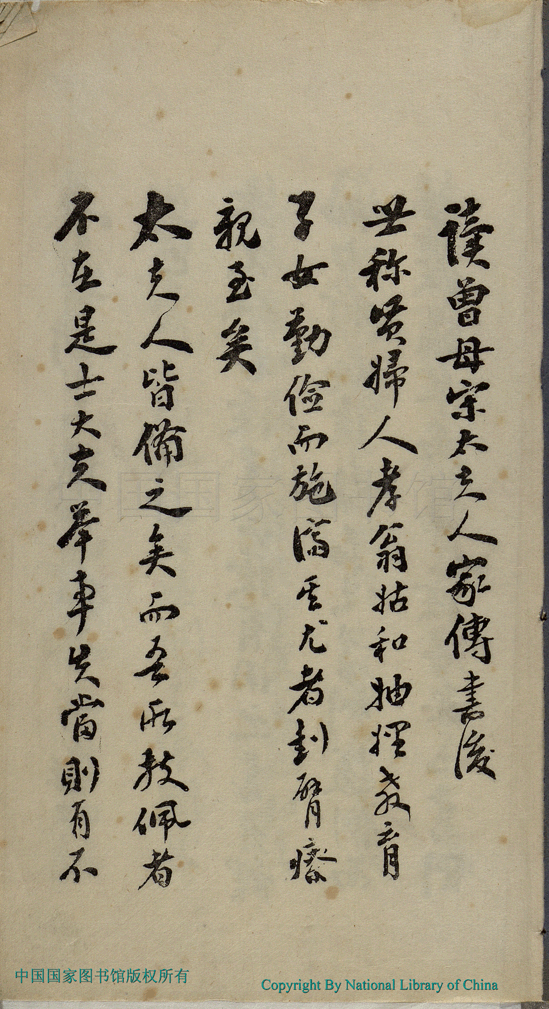 讀曾母宋太夫人家傳書後
世称贤婦人孝翁姑和妯娌教育
子女勤儉而施濟其尤者刲臂療
親至矣
太夫人皆備之矣而吾所敬佩者
不在是士大夫举事失當則有不
中国国家图书馆
中国国家图书馆版权所有
Copyright By National Library of China